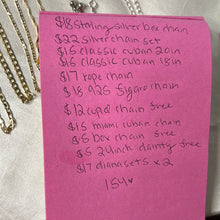 $18 sterling silver box chain
$22 silver chain set
$15 classic cuban 20in
$16 classic cuban 18in
$17 rope chain
$18 925 figaro chain
$12 cupid chain free
$15 miami cuban chain
$5 box chain free
$5 24inch dainty free
$17 diana sets x 2
154